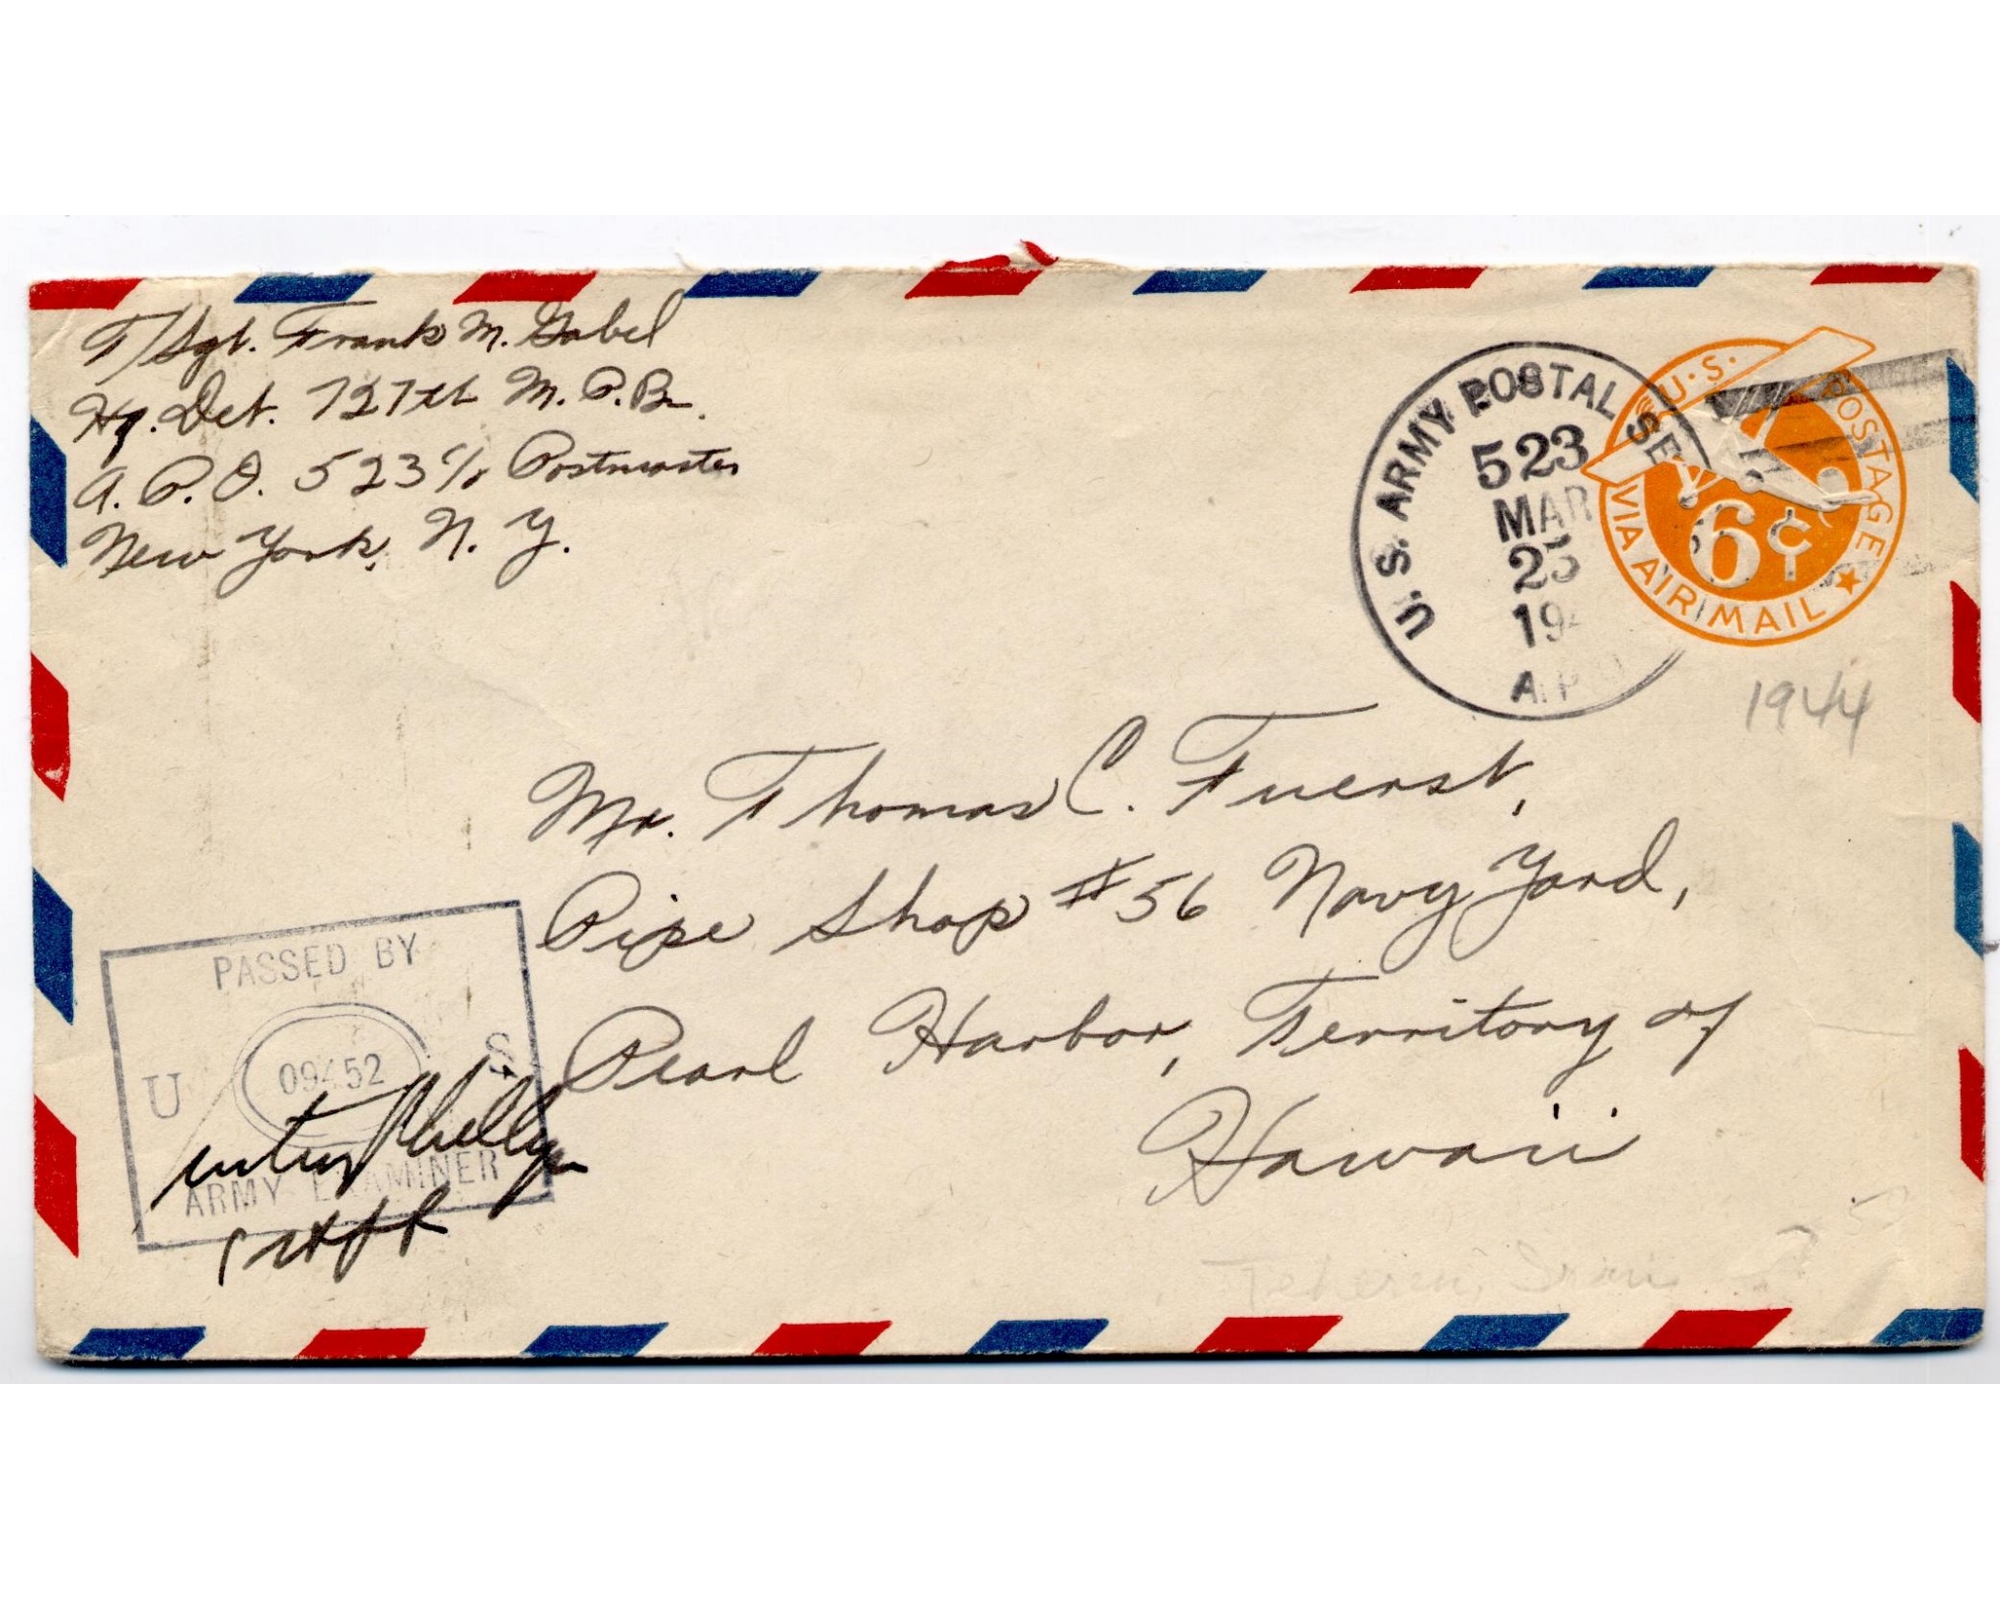 T/Sgt. Frank M. Gabel
Hq. Det. 727th M.P. Bn.
A.P.O. 523 c/o Postmaster
New York, N.Y.
U.S. ARMY POSTAL SE
523
MAR
25
19
A.P.
U.S. POSTAGE
6¢
VIA AIR MAIL
1944
Mr. Thomas C. Fuerst,
Pipe Shop #56 Navy Yard,
Pearl Harbor, Territory of
Hawaii
PASSED BY
U 09452 S
ARMY EXAMINER
Teheran, Iran